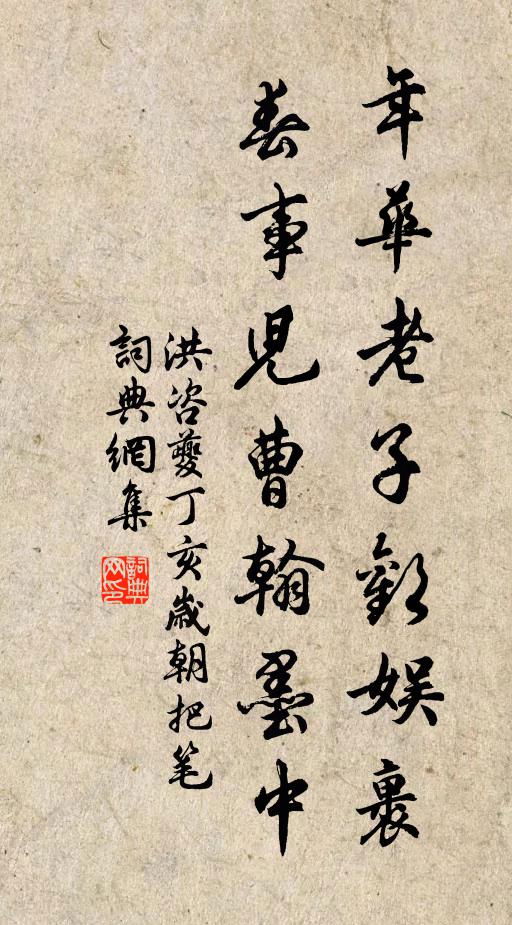 年華老子歡娛裏
春事兒曹翰墨中
洪咨夔丁亥歲朝把笔
詞典網集
詞典网印